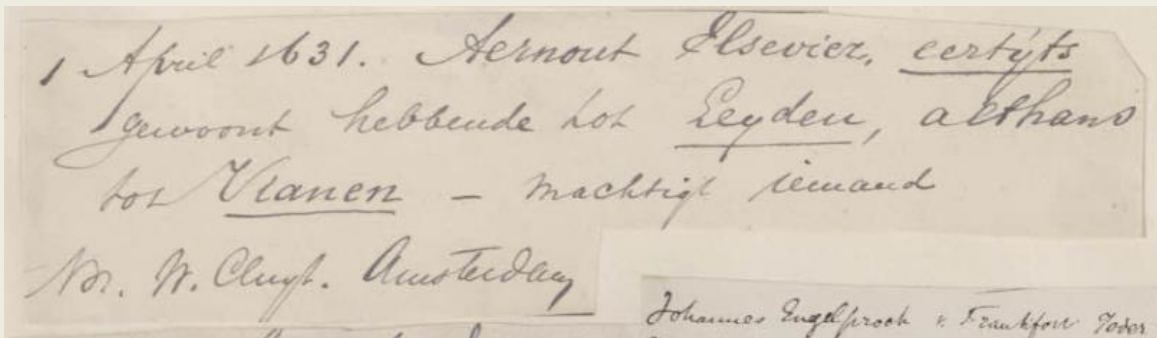 1 April 1631. Aernout Elsevier, eertÿts
gewoont hebbende tot Leyden, althans
tot Vianen – machtigt iemand
Not. W. Cluyt. Amsterdam
Johannes Engelsprock v. Frankfort